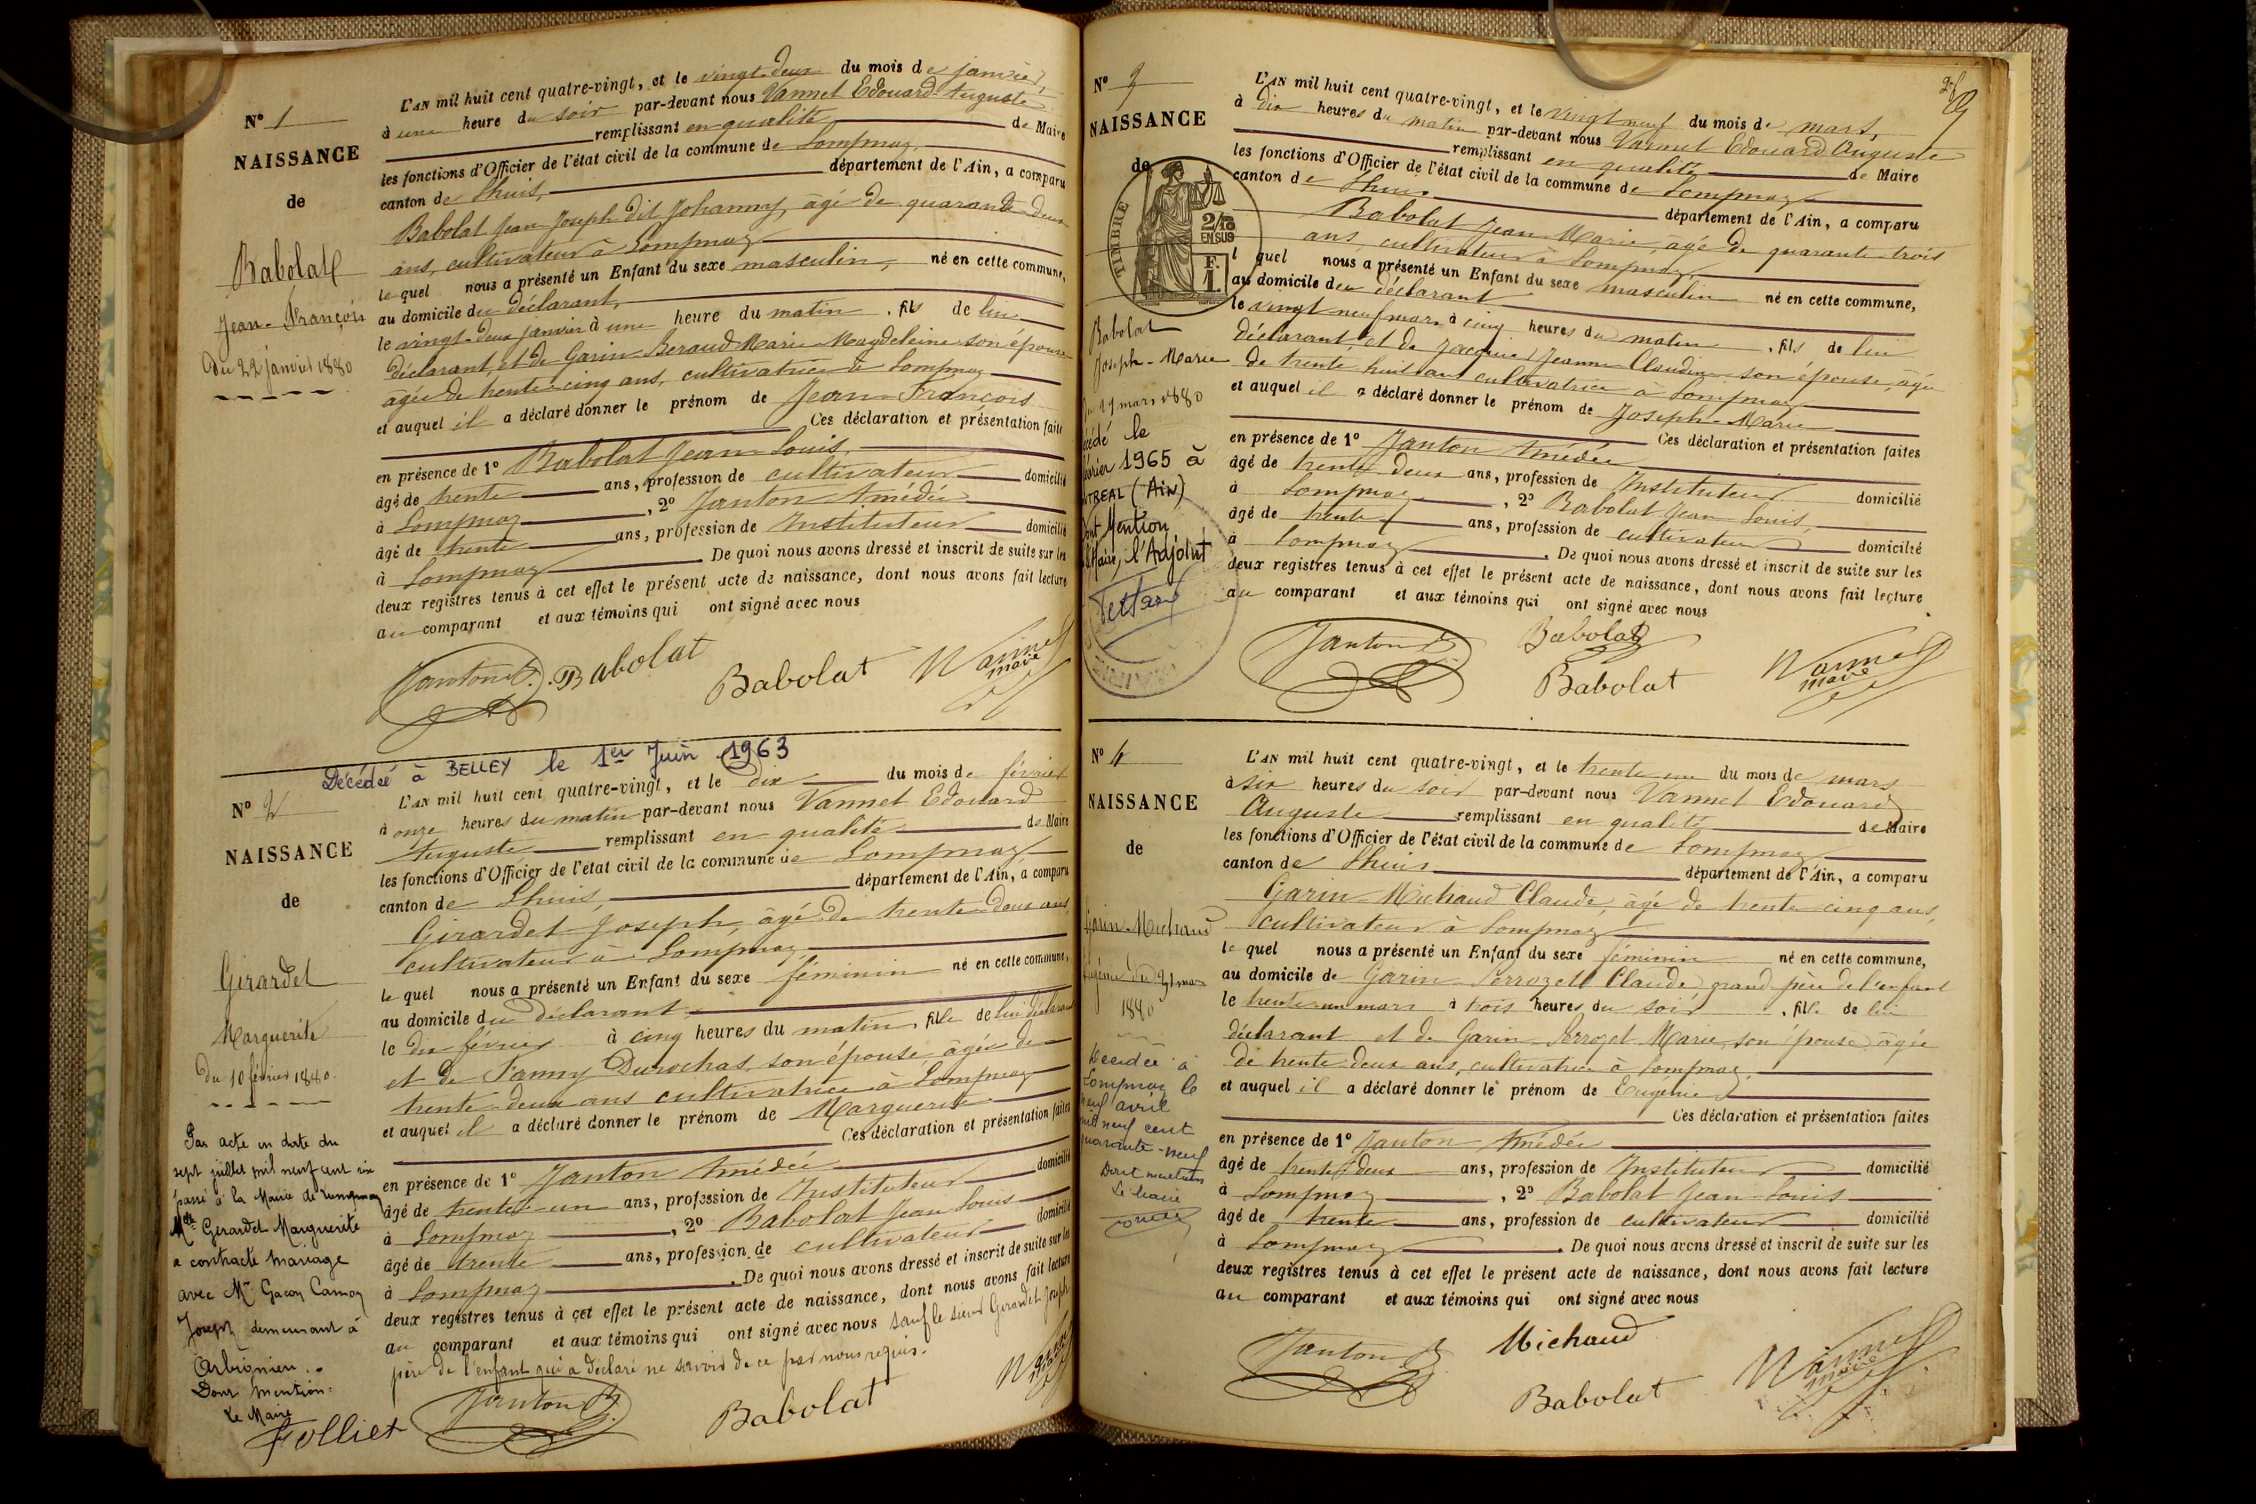 N° 1
NAISSANCE
de
Babolat
Jean-François
du 22 janvier 1880
L'AN mil huit cent quatre-vingt, et le vingt-deux du mois de janvier,
à une heure du soir par-devant nous Vannet Edouard Auguste
remplissant en qualité de Maire
les fonctions d'Officier de l'état civil de la commune de Lompnaz,
canton de Lhuis, département de l'Ain, a comparu
Babolat Jean Joseph dit Johanny, âgé de quarante deux
ans, cultivateur à Lompnaz
lequel nous a présenté un Enfant du sexe masculin, né en cette commune,
au domicile du déclarant,
le vingt-deux janvier à une heure du matin, fils de lui
déclarant, et de Garin-Beraud Marie-Magdeleine son épouse
agée de trente-cinq ans, cultivatrice à Lompnaz
et auquel il a déclaré donner le prénom de Jean-François
Ces déclaration et présentation faites
en présence de 1° Babolat Jean-Louis,
âgé de trente ans, profession de cultivateur domicilié
à Lompnaz, 2° Janton Amédée
âgé de trente ans, profession de Instituteur domicilié
à Lompnaz. De quoi nous avons dressé et inscrit de suite sur les
deux registres tenus à cet effet le présent acte de naissance, dont nous avons fait lecture
au comparant et aux témoins qui ont signé avec nous
Janton A. Babolat Babolat Vannet
maire
Décédée à BELLEY le 1er Juin 1963
N° 2
NAISSANCE
de
Girardet
Marguerite
du 10 février 1880.
Par acte en date du
sept juillet mil neuf cent six
passé à la Mairie de Lompnaz
Mlle Girardet Marguerite
a contracté mariage
avec Mr Gacon Camoz
Joseph demeurant à
Arbignieu.
Dont mention.
Le Maire
Folliet
L'AN mil huit cent quatre-vingt, et le dix du mois de février
à onze heures du matin par-devant nous Vannet Edouard
Auguste remplissant en qualité de Maire
les fonctions d'Officier de l'état civil de la commune de Lompnaz
canton de Lhuis, département de l'Ain, a comparu
Girardet Joseph, âgé de trente-deux ans,
cultivateur à Lompnaz
lequel nous a présenté un Enfant du sexe féminin né en cette commune,
au domicile du déclarant
le dix février à cinq heures du matin, fille de lui déclarant
et de Fanny Durochas, son épouse âgée de
trente-deux ans cultivatrice à Lompnaz
et auquel il a déclaré donner le prénom de Marguerite
Ces déclaration et présentation faites
en présence de 1° Janton Amédée
âgé de trente-un ans, profession de Instituteur domicilié
à Lompnaz, 2° Babolat Jean Louis
âgé de trente ans, profession de cultivateur domicilié
à Lompnaz. De quoi nous avons dressé et inscrit de suite sur les
deux registres tenus à cet effet le présent acte de naissance, dont nous avons fait lecture
au comparant et aux témoins qui ont signé avec nous sauf le sieur Girardet Joseph
père de l'enfant qui a déclaré ne savoir de ce par nous requis.
Janton A. Babolat
N° 3
NAISSANCE
de
TIMBRE
2/10
EN SUS
F.
1.
Babolat
Joseph-Marie
mars 1880
le
1965 à
(Ain)
Mention
l'Adjoint
L'AN mil huit cent quatre-vingt, et le vingt neuf du mois de mars,
à dix heures du matin par-devant nous Vannet Edouard Auguste
remplissant en qualité de Maire
les fonctions d'Officier de l'état civil de la commune de Lompnaz
canton de Lhuis département de l'Ain, a comparu
Babolat Jean-Marie, âgé de quarante-trois
ans, cultivateur à Lompnaz,
lequel nous a présenté un Enfant du sexe masculin né en cette commune,
au domicile du déclarant
le vingt neuf mars à cinq heures du matin, fils de lui
déclarant, et de Jacquier Jeanne Claudine son épouse, âgée
de trente huit ans cultivatrice à Lompnaz
et auquel il a déclaré donner le prénom de Joseph-Marie
Ces déclaration et présentation faites
en présence de 1° Janton Amédée
âgé de trente deux ans, profession de Instituteur domicilié
à Lompnaz, 2° Babolat Jean Louis,
âgé de trente ans, profession de cultivateur domicilié
à Lompnaz. De quoi nous avons dressé et inscrit de suite sur les
deux registres tenus à cet effet le présent acte de naissance, dont nous avons fait lecture
au comparant et aux témoins qui ont signé avec nous
Janton A. Babolat
Babolat Vannet
maire
N° 4
NAISSANCE
de
Garin-Michaud
Eugénie du 31 mars
1880
Décédée à
Lompnaz le
neuf avril
mil neuf cent
quarante-neuf
Dont mention
Le Maire
L'AN mil huit cent quatre-vingt, et le trente-un du mois de mars
à six heures du soir par-devant nous Vannet Edouard
Auguste remplissant en qualité de Maire
les fonctions d'Officier de l'état civil de la commune de Lompnaz
canton de Lhuis département de l'Ain, a comparu
Garin-Michaud Claude, âgé de trente cinq ans,
cultivateur à Lompnaz
lequel nous a présenté un Enfant du sexe féminin né en cette commune,
au domicile de Garin-Perrozet Claude, grand père de l'enfant
le trente-un mars à trois heures du soir, fille de lui
déclarant et de Garin-Perrozet Marie, son épouse, âgée
de trente-deux ans, cultivatrice à Lompnaz,
et auquel il a déclaré donner le prénom de Eugénie
Ces déclaration et présentation faites
en présence de 1° Janton Amédée
âgé de trente-deux ans, profession de Instituteur domicilié
à Lompnaz, 2° Babolat Jean-Louis
âgé de trente ans, profession de cultivateur domicilié
à Lompnaz. De quoi nous avons dressé et inscrit de suite sur les
deux registres tenus à cet effet le présent acte de naissance, dont nous avons fait lecture
au comparant et aux témoins qui ont signé avec nous
Janton A. Michaud
Babolat Vannet
maire